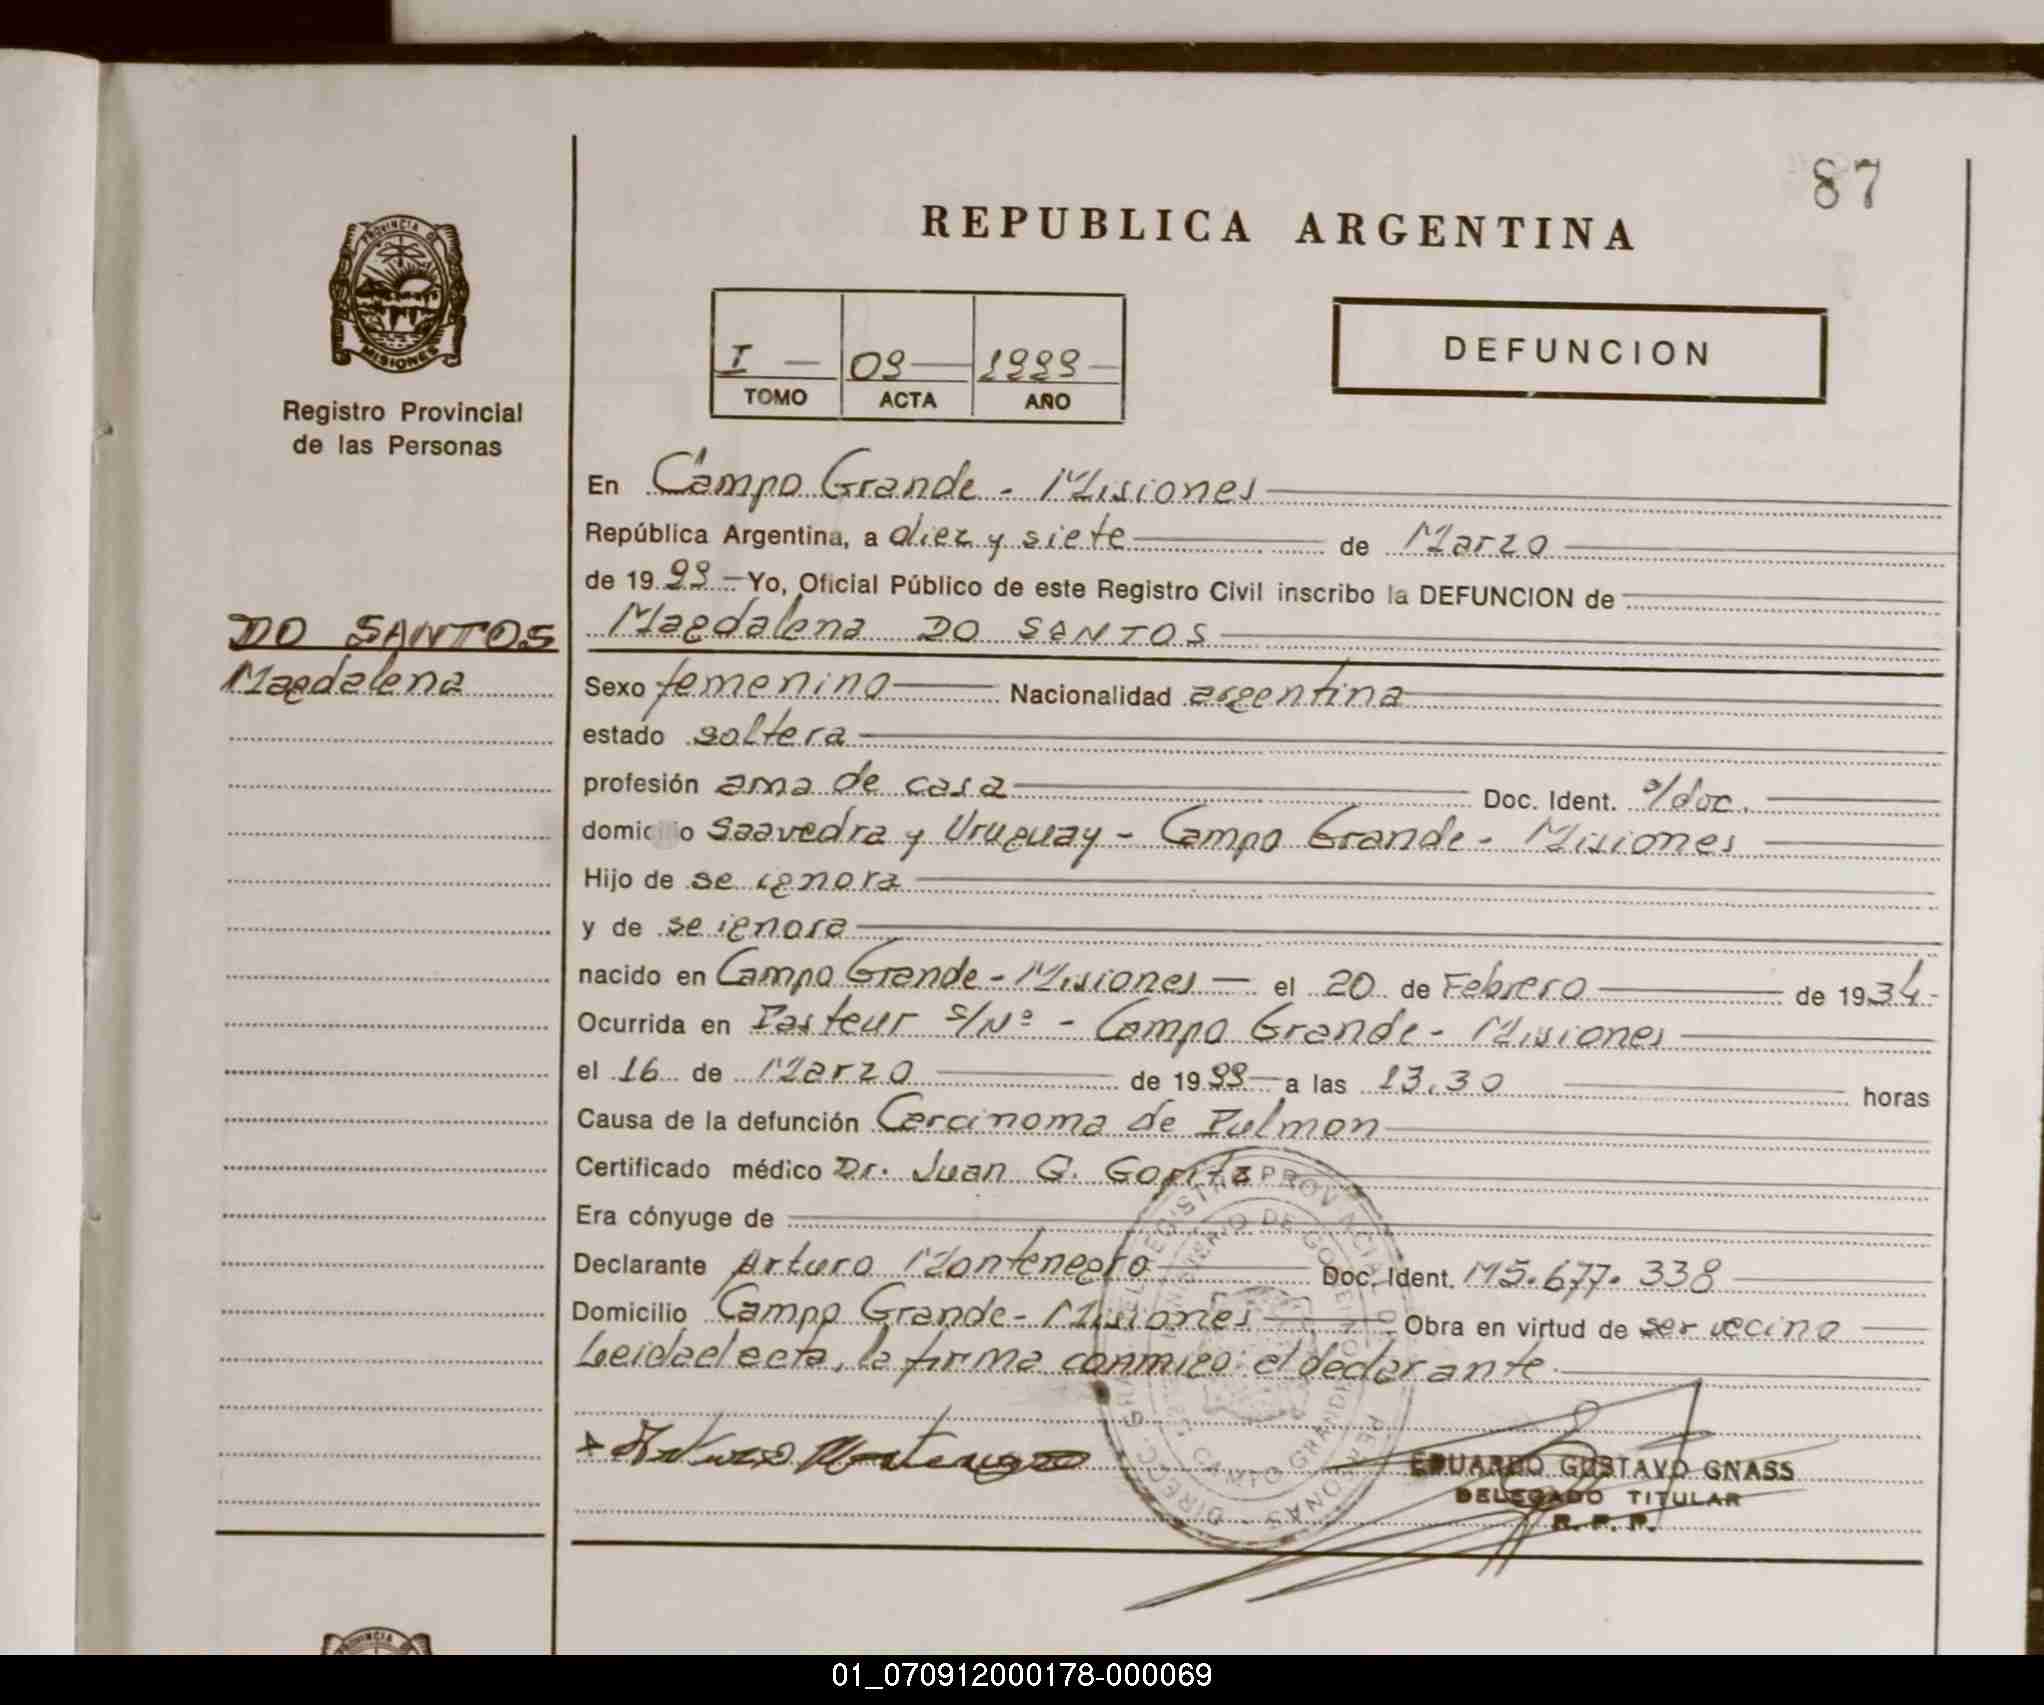 87
REPUBLICA ARGENTINA
PROVINCIA DE
MISIONES
Registro Provincial
de las Personas
I — 09 — 1999 —
TOMO ACTA AÑO
DEFUNCION
En Campo Grande - Misiones
República Argentina, a diez y siete de Marzo
de 1999 — Yo, Oficial Público de este Registro Civil inscribo la DEFUNCION de
DO SANTOS
Magdalena
Magdalena DO SANTOS
Sexo femenino Nacionalidad argentina
estado soltera
profesión ama de casa Doc. Ident. s/doc.
domicilio Saavedra y Uruguay - Campo Grande - Misiones
Hijo de se ignora
y de se ignora
nacido en Campo Grande - Misiones — el 20 de Febrero de 1934 -
Ocurrida en Pasteur s/Nº - Campo Grande - Misiones
el 16 de Marzo de 1999 — a las 13.30 horas
Causa de la defunción Carcinoma de Pulmon
Certificado médico Dr. Juan G.
Era cónyuge de
Declarante Arturo Montenegro Doc. Ident. M5.677.338
Domicilio Campo Grande - Misiones Obra en virtud de ser vecino
Leida el acta, la firma conmigo: el declarante
Arturo Montenegro
EDUARDO GUSTAVO GNASS
DELEGADO TITULAR
R. P. P.
PROVINCIA DE
01_070912000178-000069